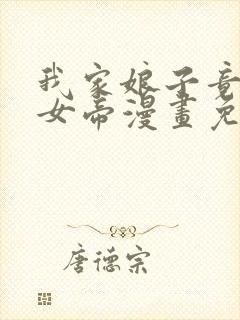 我家娘子竟
女帝漫畫免
唐德宗